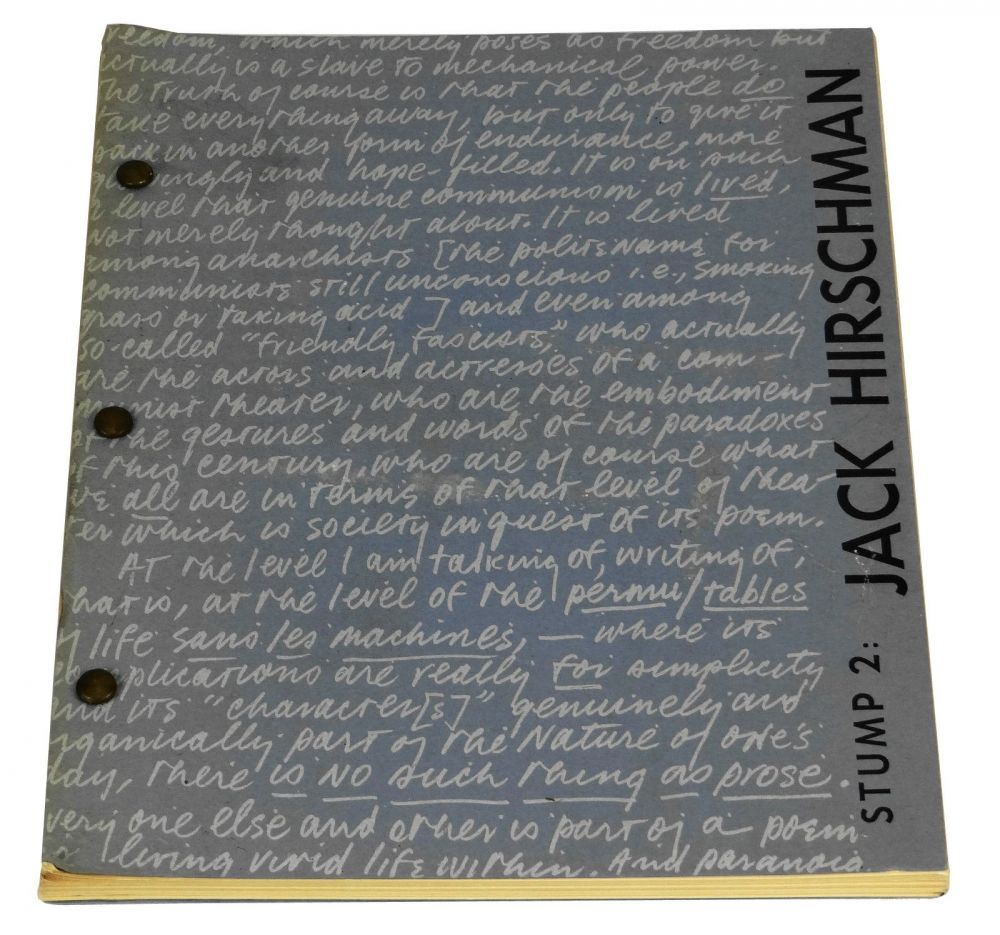 reedom, which merely poses as freedom but
actually is a slave to mechanical power.
The truth of course is that the people do
take everything away, but only to give it
back in another form of endurance, more
and hope-filled. It is on such
a level that genuine communism is lived,
not merely thought about. It is lived
among anarchists [the polite name for
communists still unconscious i.e., smoking
grass or taking acid] and even among
so-called "friendly fascists," who actually
are the actors and actresses of a com-
munist theater, who are the embodiment
of the gestures and words of the paradoxes
of this century, who are of course what
we all are in terms of that level of thea-
ter which is society in quest of its poem.
At the level I am talking of, writing of,
that is, at the level of the permu/tables
of life sans les machines, — where its
complications are really for simplicity
and its "character[s]" genuinely and
organically part of the Nature of one's
day, there is no such thing as prose.
very one else and other is part of a poem
living vivid life within. And paranoia
STUMP 2: JACK HIRSCHMAN